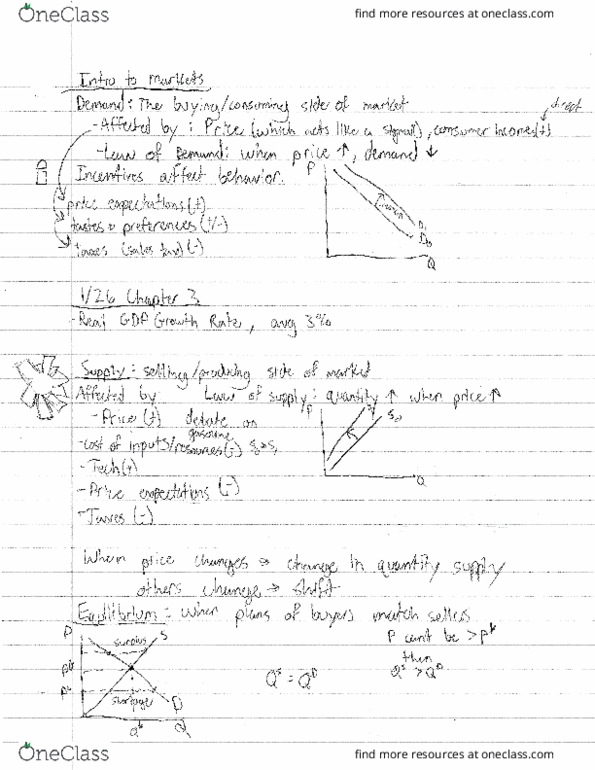 OneClass
find more resources at oneclass.com
Intro to markets
Demand: The buying/consuming side of market
direct
-Affected by: Price (which acts like a signal), consumer incomes(+)
-Law of Demand: when price ↑, demand ↓
Incentives affect behavior.
P
price expectations (+)
tastes & preferences (+/-)
taxes (sales tax) (-)
D₁
D₀
Q
1/26 Chapter 3
-Real GDP Growth Rate, avg 3%
Supply: selling/producing side of market
Affected by Law of supply: quantity ↑ when price ↑
P
-Price (+) debate on
gasoline
-cost of inputs/resources(-) S₀→S₁
S₀
-Tech(+)
Q
-Price expectations (-)
-Taxes (-)
When price changes → change in quantity supply
others change → shift
Equilibrium: when plans of buyers match sellers
P surplus S
P can't be > P*
then
Qˢ > Qᴰ
Qˢ = Qᴰ
P*
shortage D
Q* Q
OneClass
find more resources at oneclass.com